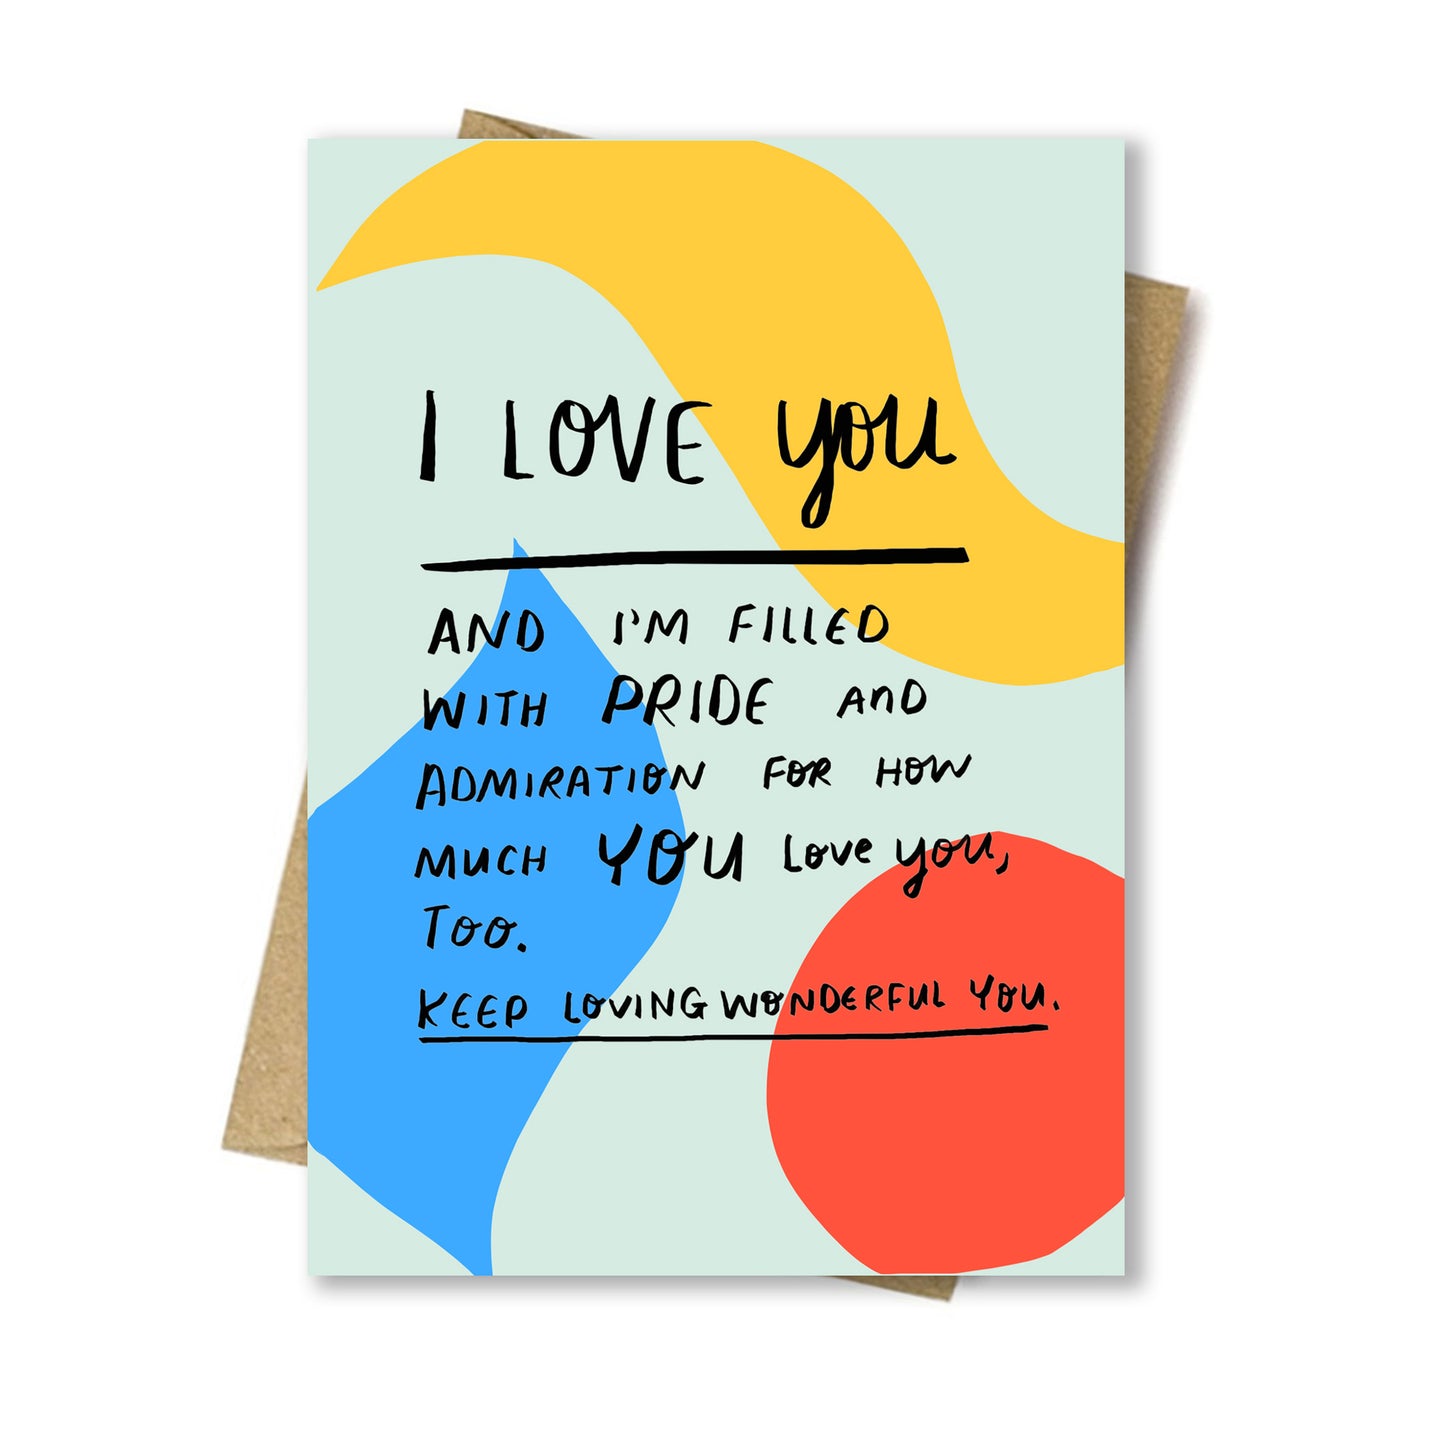 I LOVE you
AND I'M FILLED
WITH PRIDE AnD
ADMIRATION FOR HOW
MUCH YOU Love you,
Too.
KEEP LOVING WONDERFUL YOU.